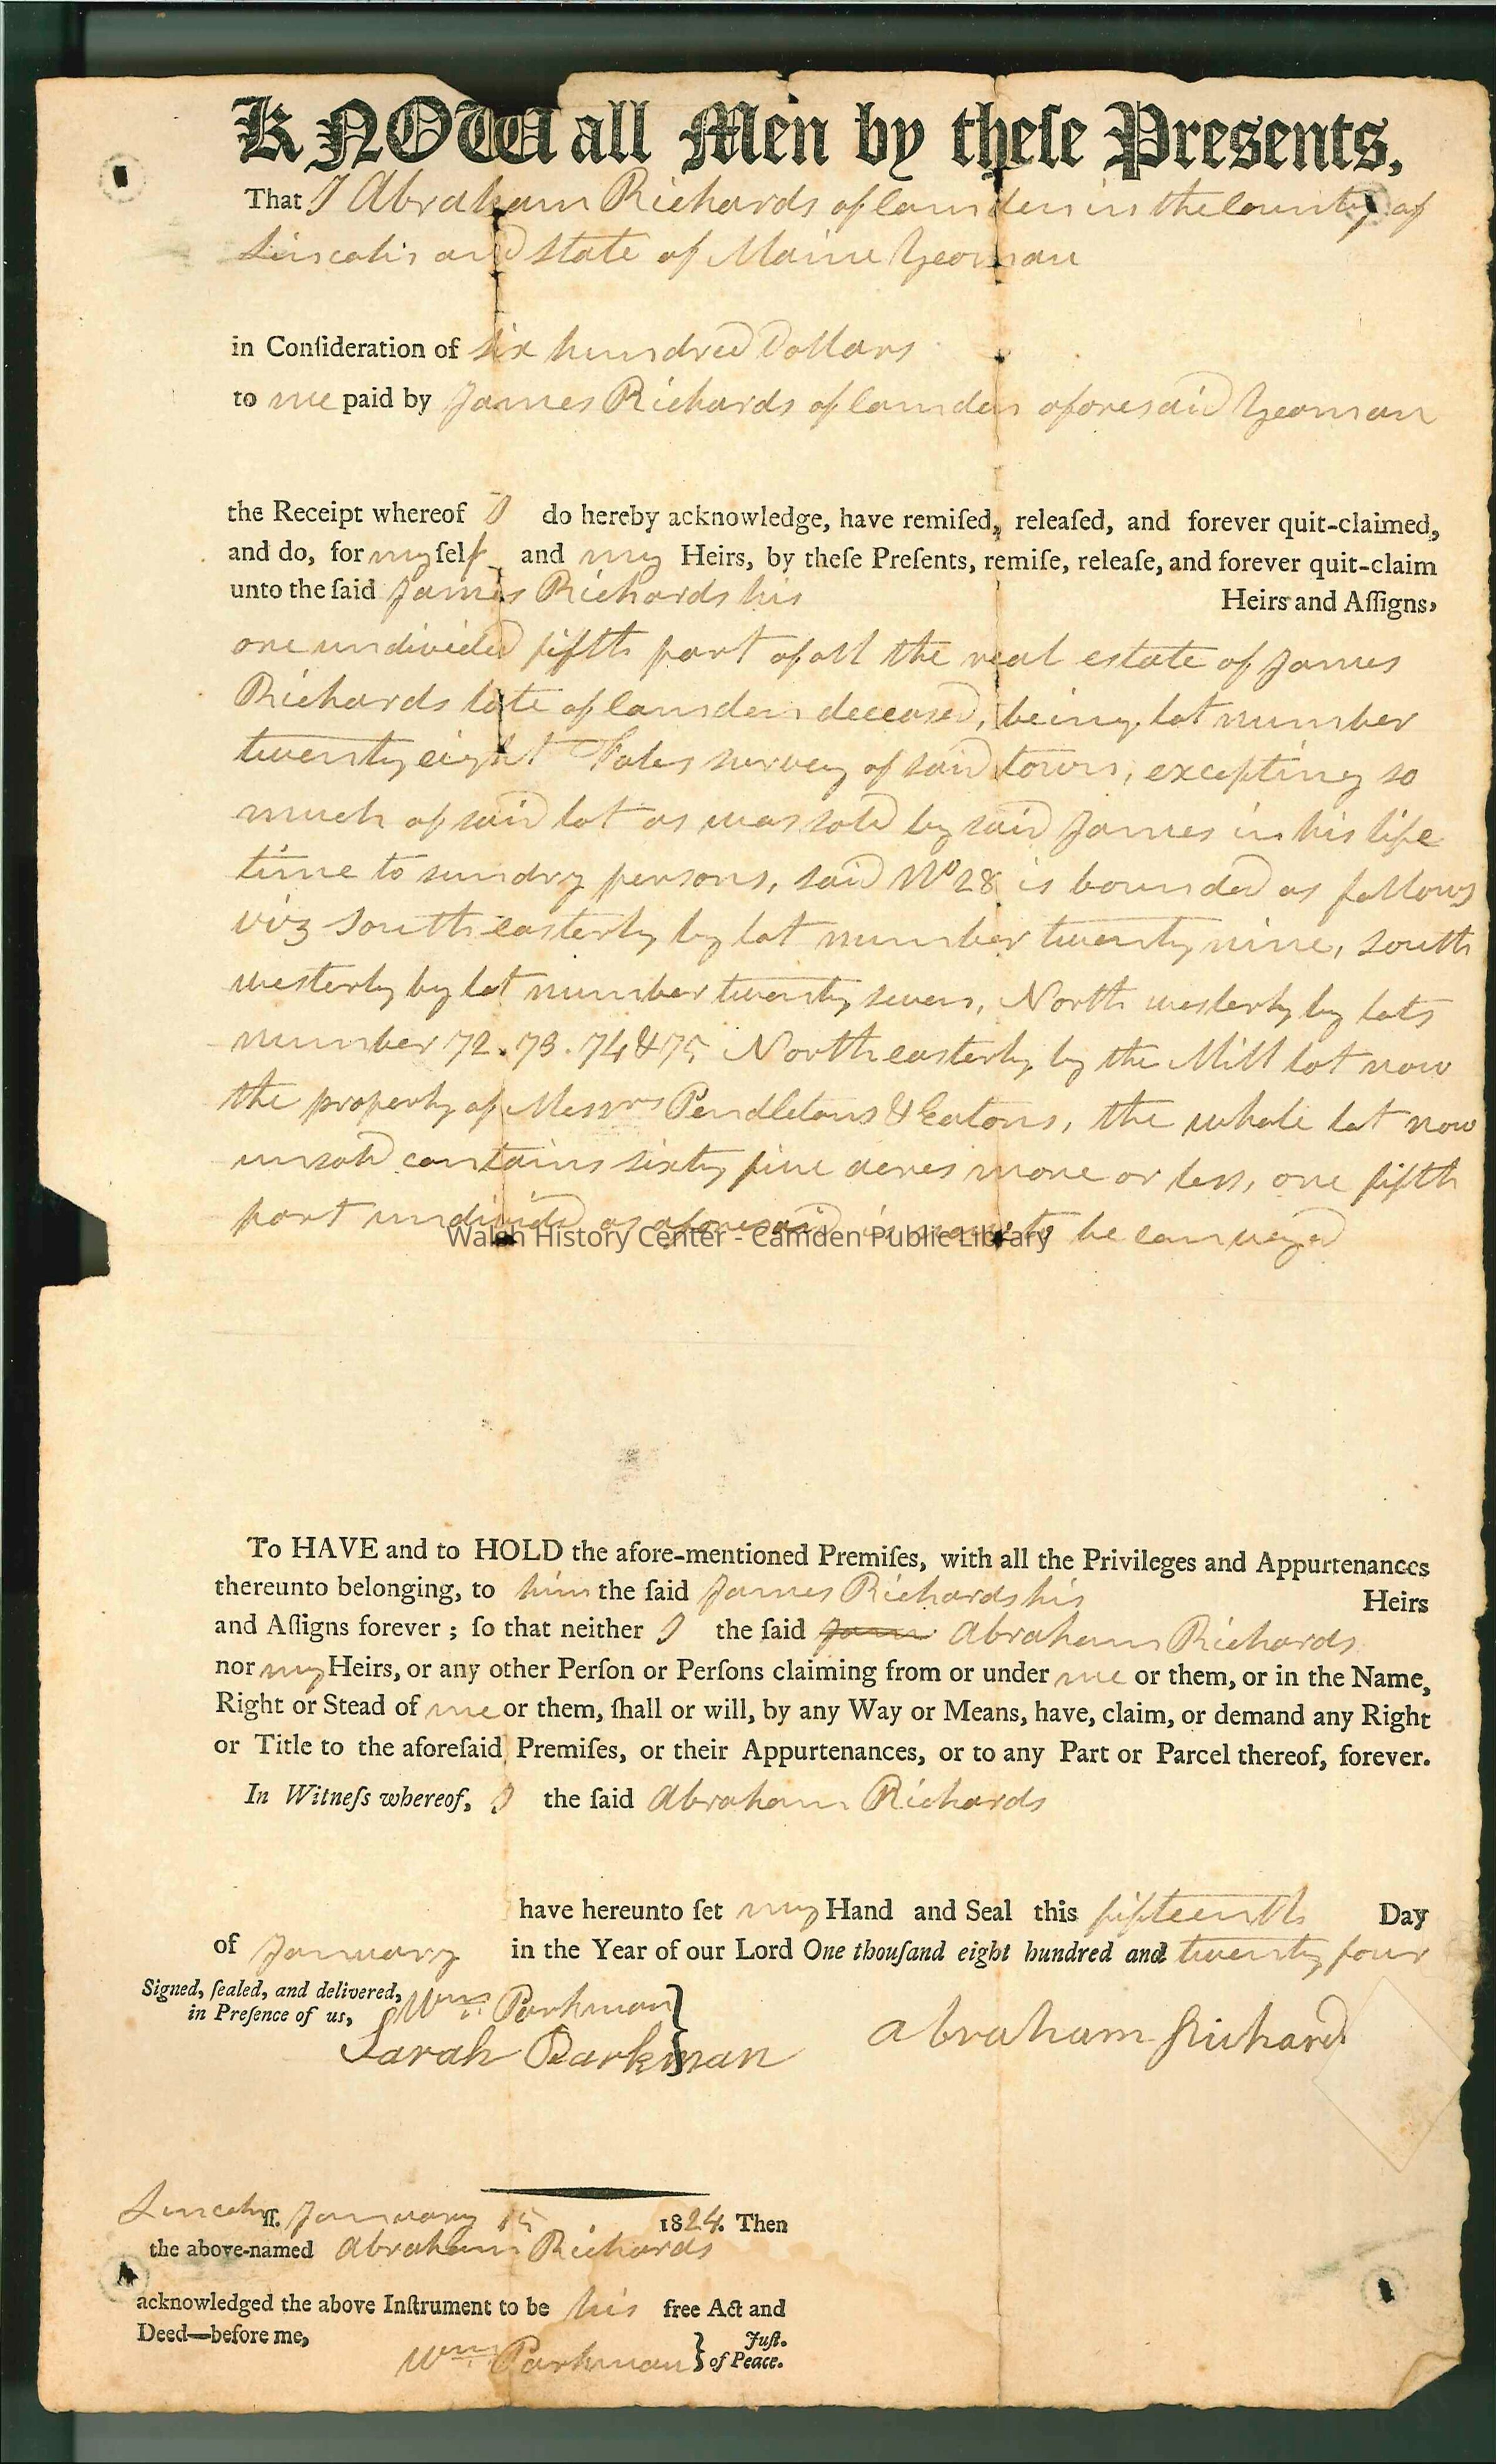 KNOW all Men by theſe Presents,
That I Abraham Richards of Camden in the County of
Lincoln and State of Maine Yeoman
in Conſideration of six hundred Dollars
to me paid by James Richards of Camden aforesaid Yeoman
the Receipt whereof I do hereby acknowledge, have remiſed, releaſed, and forever quit-claimed,
and do, for myſelf and my Heirs, by theſe Preſents, remiſe, releaſe, and forever quit-claim
unto the ſaid James Richards his Heirs and Aſſigns,
one undivided fifth part of all the real estate of James
Richards late of Camden deceased, being lot number
twenty eight Fales survey of said town, excepting so
much of said lot as was sold by said James in his life
time to sundry persons, said No 28 is bounded as follows
viz South easterly by lot number twenty nine, south
westerly by lot number twenty seven, North westerly by lots
number 72. 73. 74 & 75 North easterly by the Mill lot now
the property of Messrs Pendletons & Eatons, the whole lot now
unsold contains sixty five acres more or less, one fifth
part undivided as aforesaid is to be conveyed
Walsh History Center - Camden Public Library
To HAVE and to HOLD the afore-mentioned Premiſes, with all the Privileges and Appurtenances
thereunto belonging, to him the ſaid James Richards his Heirs
and Aſſigns forever ; ſo that neither I the ſaid Jam Abraham Richards
nor my Heirs, or any other Perſon or Perſons claiming from or under me or them, or in the Name,
Right or Stead of me or them, ſhall or will, by any Way or Means, have, claim, or demand any Right
or Title to the aforeſaid Premiſes, or their Appurtenances, or to any Part or Parcel thereof, forever.
In Witneſs whereof, I the ſaid Abraham Richards
have hereunto ſet my Hand and Seal this fifteenth Day
of January in the Year of our Lord One thouſand eight hundred and twenty four
Signed, ſealed, and delivered,
in Preſence of us, Wm Parkman
Sarah Parkman
Abraham Richards
Lincoln ſſ. January 15 1824. Then
the above-named Abraham Richards
acknowledged the above Inſtrument to be his free Act and
Deed—before me, Juſt.
Wm Parkman } of Peace.